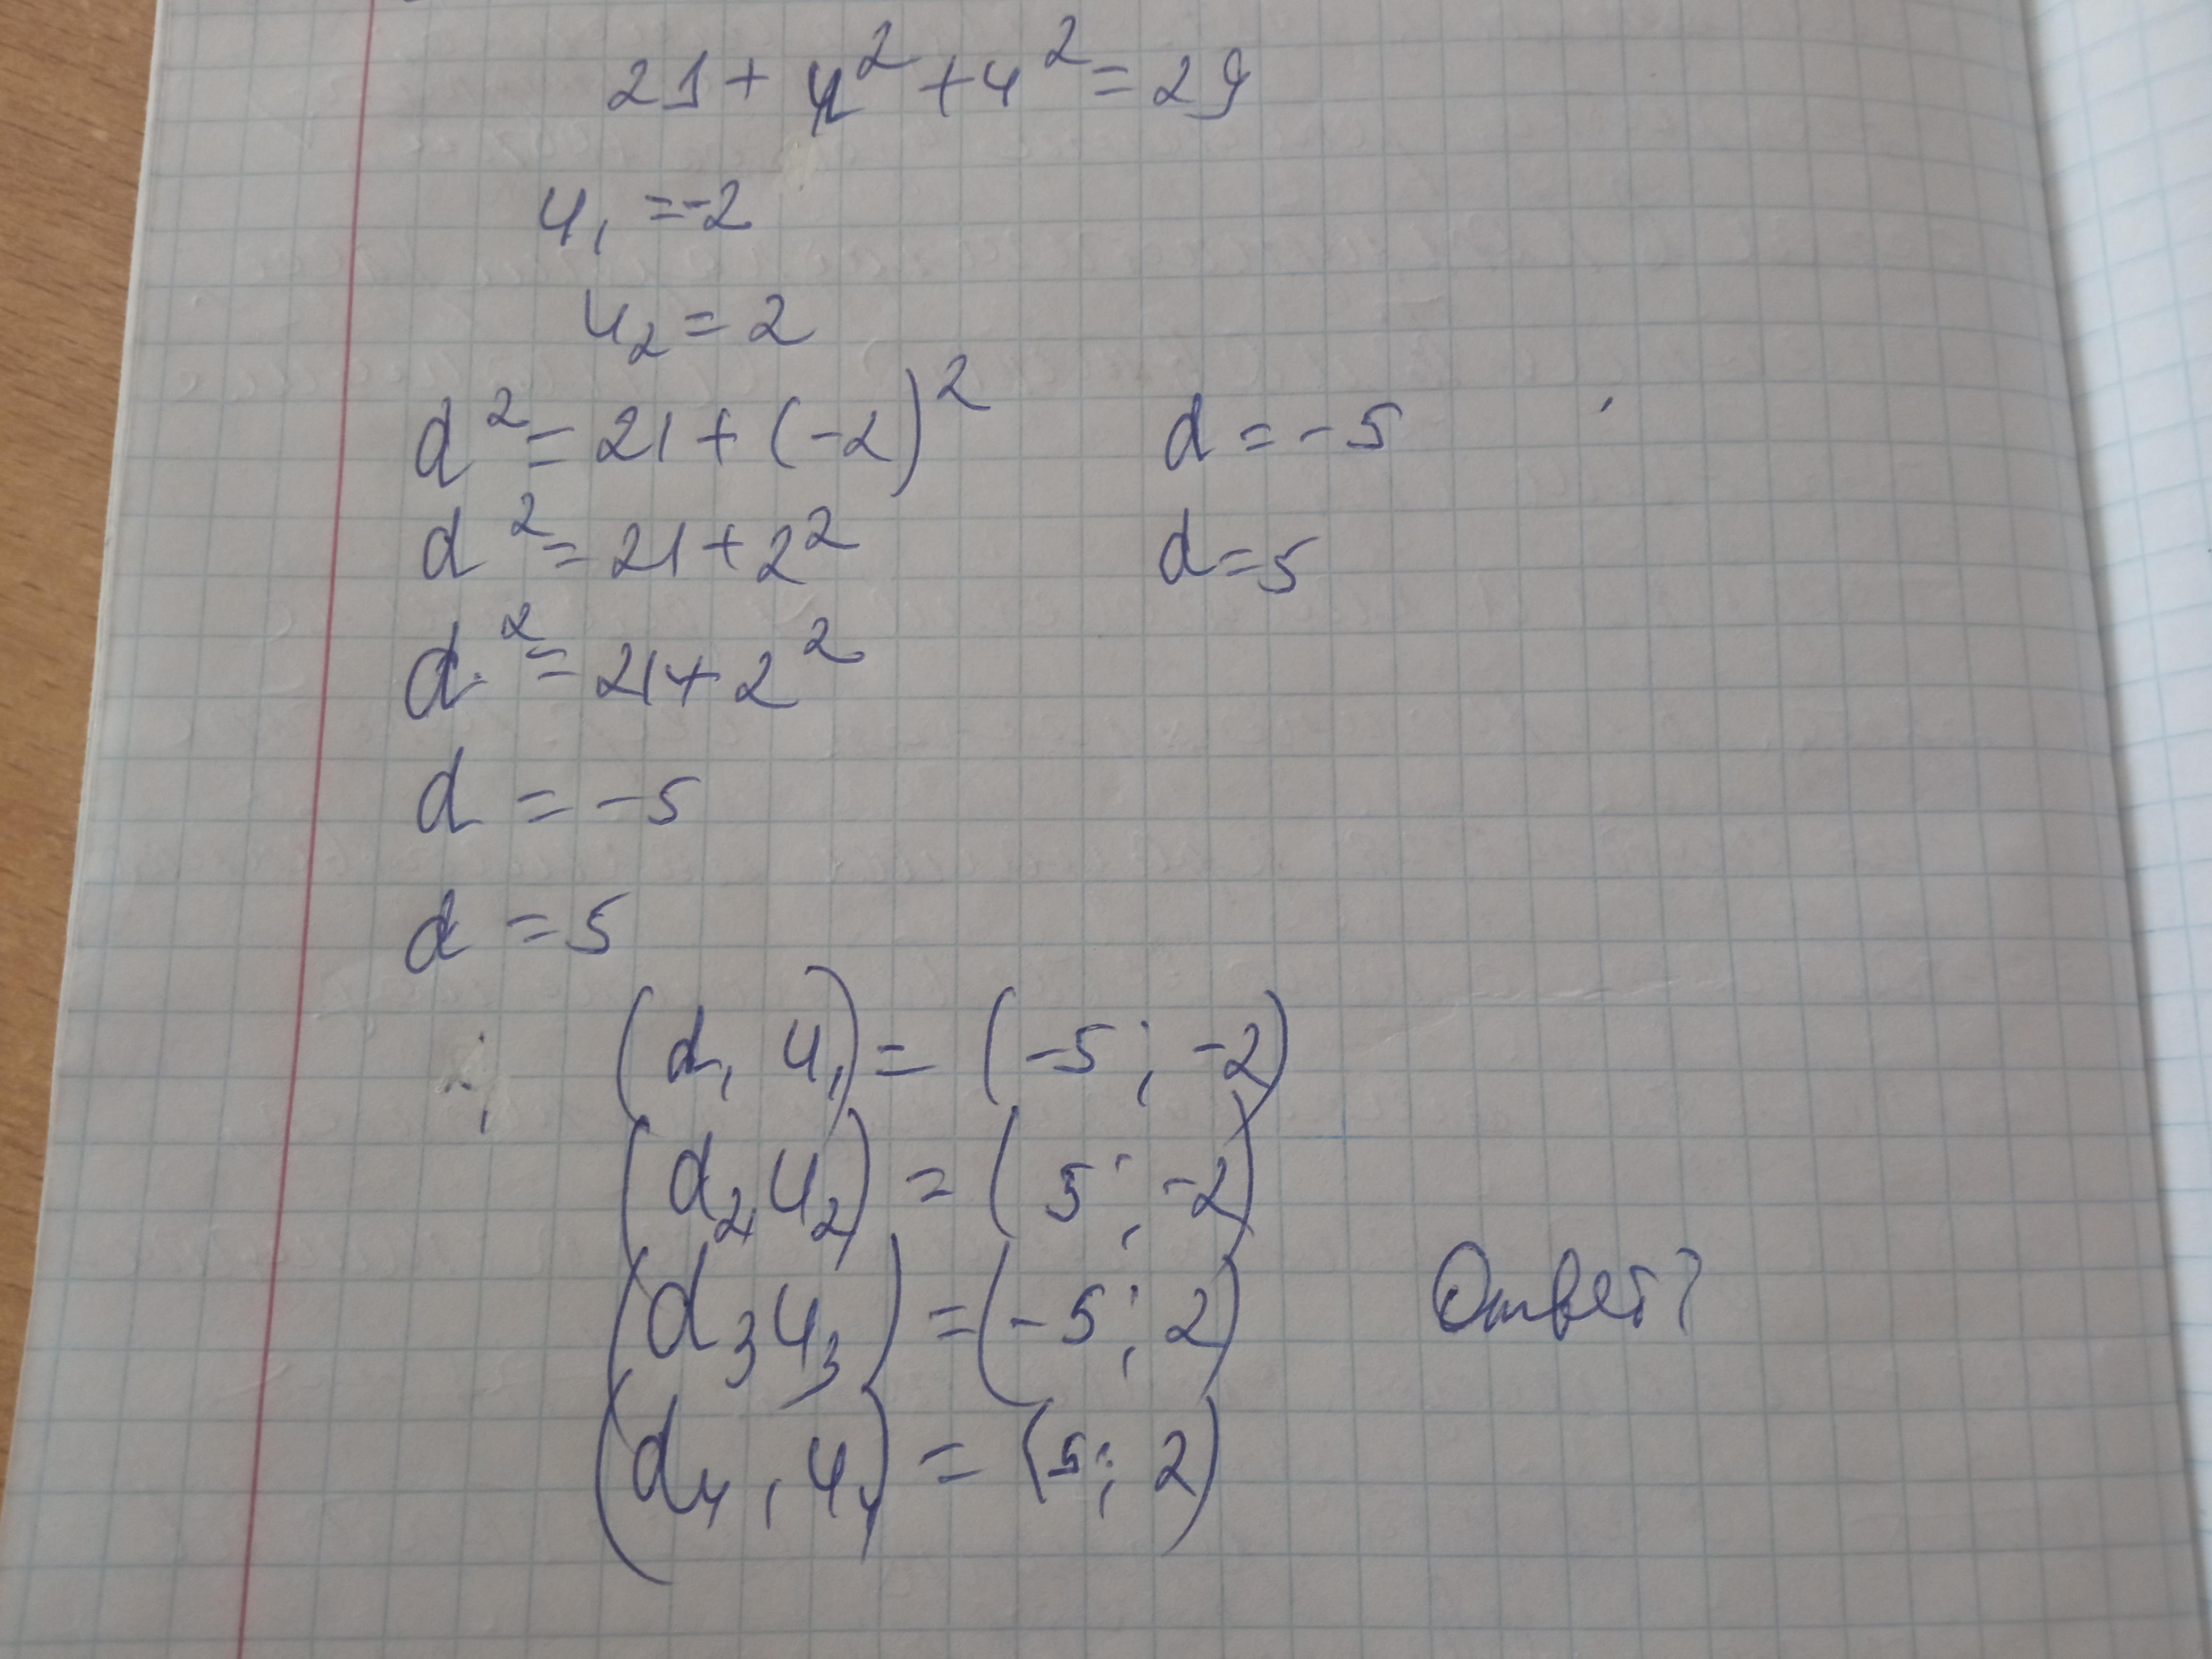 21 + y² + y² = 29
y₁ = -2
y₂ = 2
d² = 21 + (-2)² d = -5
d² = 21 + 2² d = 5
d² = 21 + 2²
d = -5
d = 5
(d₁ y₁) = (-5; -2)
(d₂, y₂) = (5; -2)
(d₃ y₃) = (-5; 2) Ответ?
(d₄, y₄) = (5; 2)